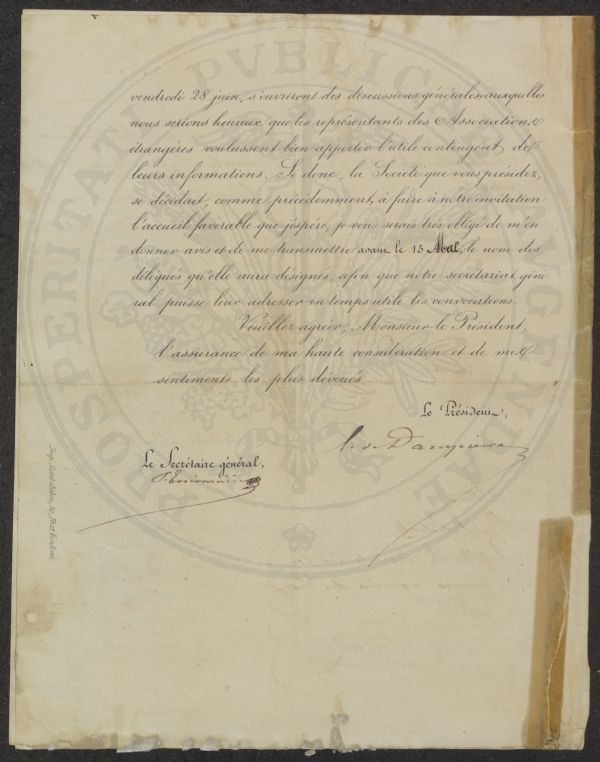 vendredi 28 juin, s'ouvriront des discussions générales, auxquelles
nous serions heureux que les représentants des Associations
étrangères voulussent bien apporter l'utile contingent de
leurs informations. Si donc, la Société que vous présidez,
se décidait, comme précédemment, à faire à nôtre invitation
l'accueil favorable que j'espère, je vous serais très obligé de m'en
donner avis et de me transmettre avant le 15 Mai, le nom des
délégués qu'elle aura désignés, afin que notre secrétariat géné
ral puisse leur adresser en temps utile les convocations.
Veuillez agréer, Monsieur le Président,
l'assurance de ma haute considération et de mes
sentiments les plus dévoués.
Le Président,
Dampierre
Le Secrétaire général,
PROSPERITATI PVBLICAE